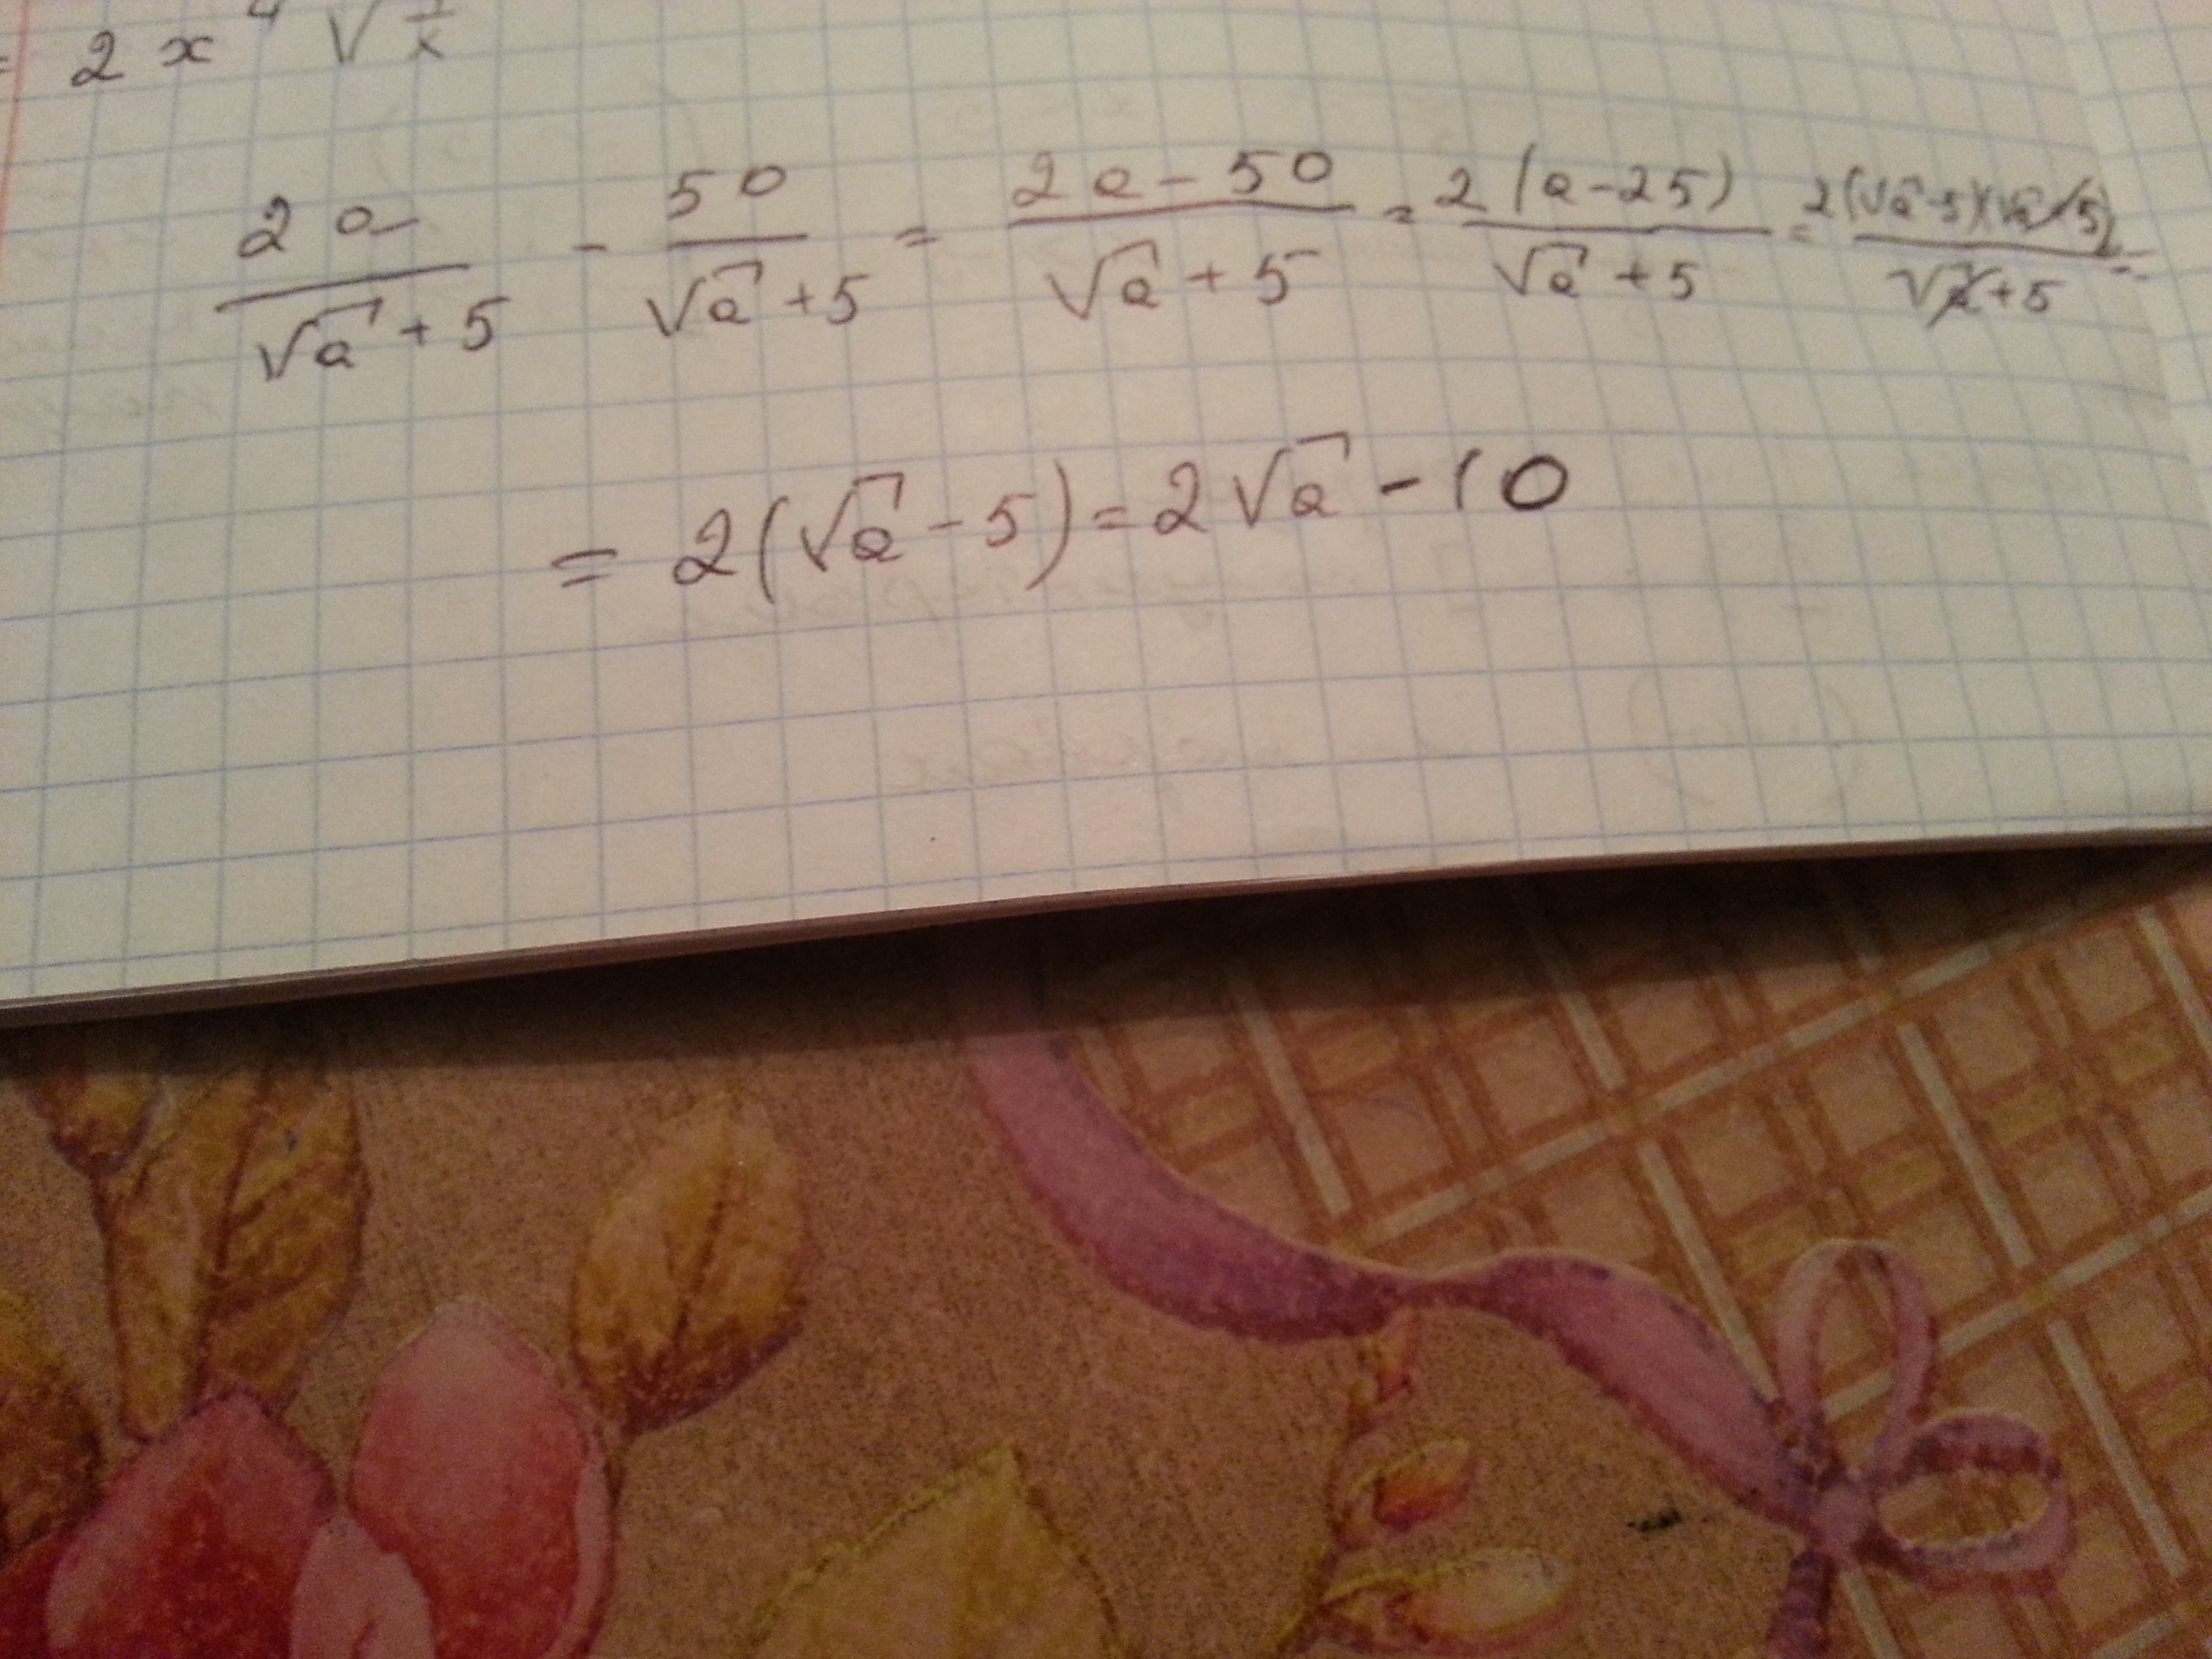 = 2 x⁴ √(1/x)
2a/(√a + 5) - 50/(√a + 5) = (2a - 50)/(√a + 5) = 2(a - 25)/(√a + 5) = 2(√a - 5)(√a + 5)/(√a + 5) =
= 2(√a - 5) = 2√a - 10